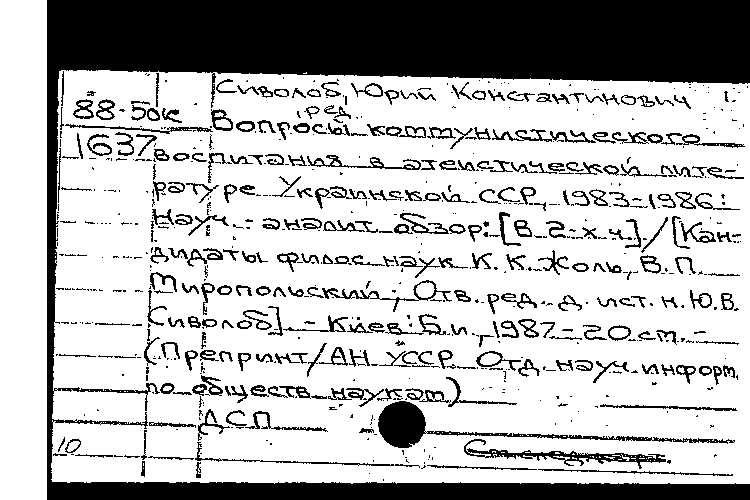 Сиволоб, Юрий Константинович 1.
, ред.
88-50к Вопросы коммунистического
1637 воспитания в атеистической лите-
ратуре Украинской ССР, 1983-1986:
Науч.-аналит обзор: [В 2-х ч.] / [Кан-
дидаты филос. наук К. К. Жоль, В. П.
Миропольский; Отв. ред. д. ист. н. Ю. В.
Сиволоб]. - Киев: Б. и., 1987 - 20 см. -
(Препринт / АН УССР. Отд. науч. информ.
по обществ. наукам)
ДСП
10